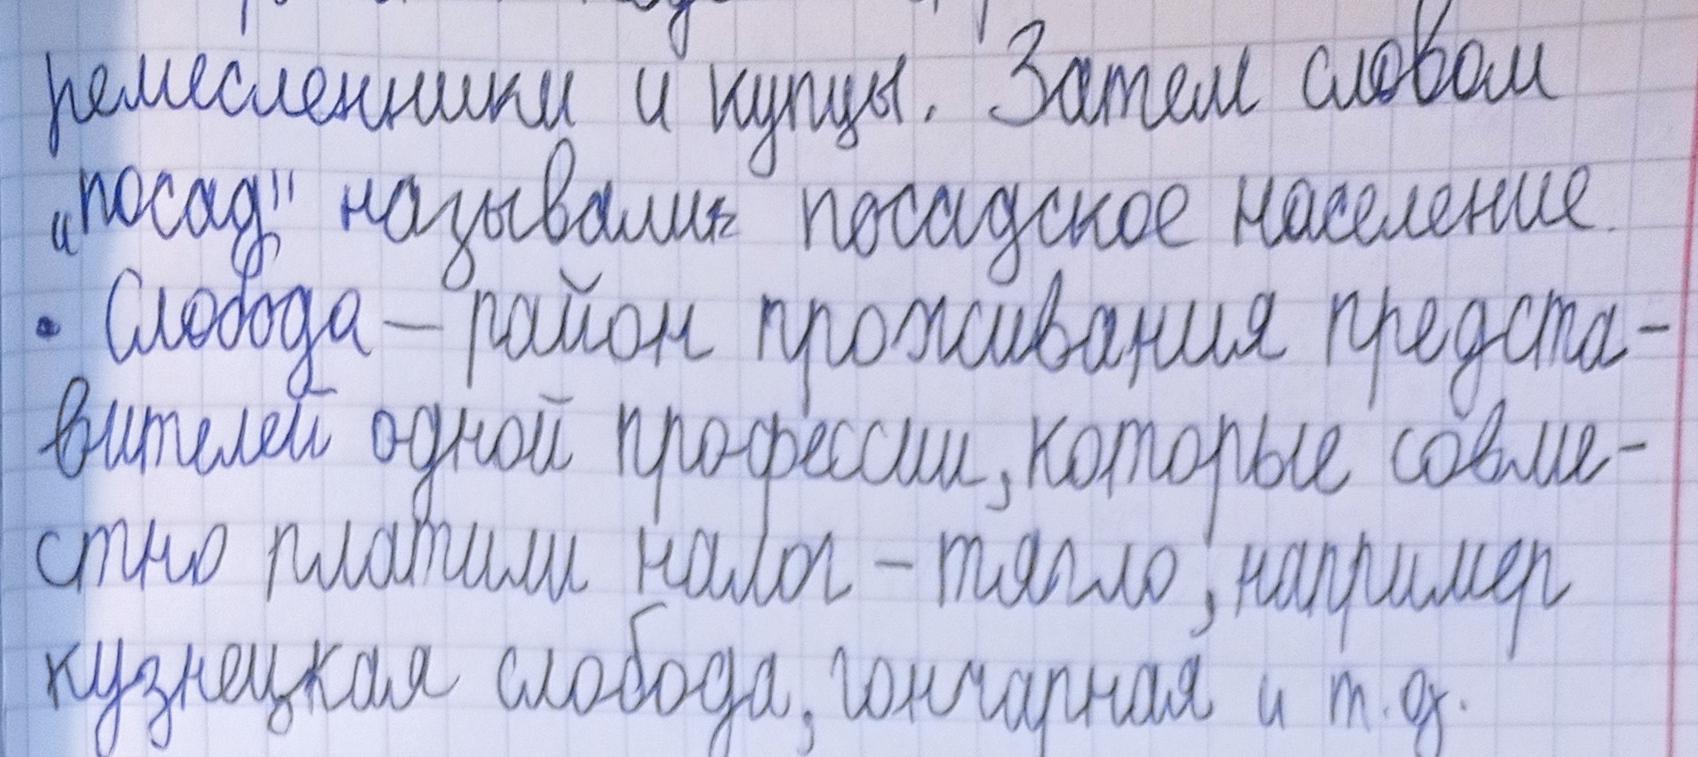 ремесленники и купцы. Затем словом
„посад" называли посадское население.
• Слобода — район проживания предста-
вителей одной профессии, которые совме-
стно платили налог - тягло, например
кузнецкая слобода, гончарная и т.д.